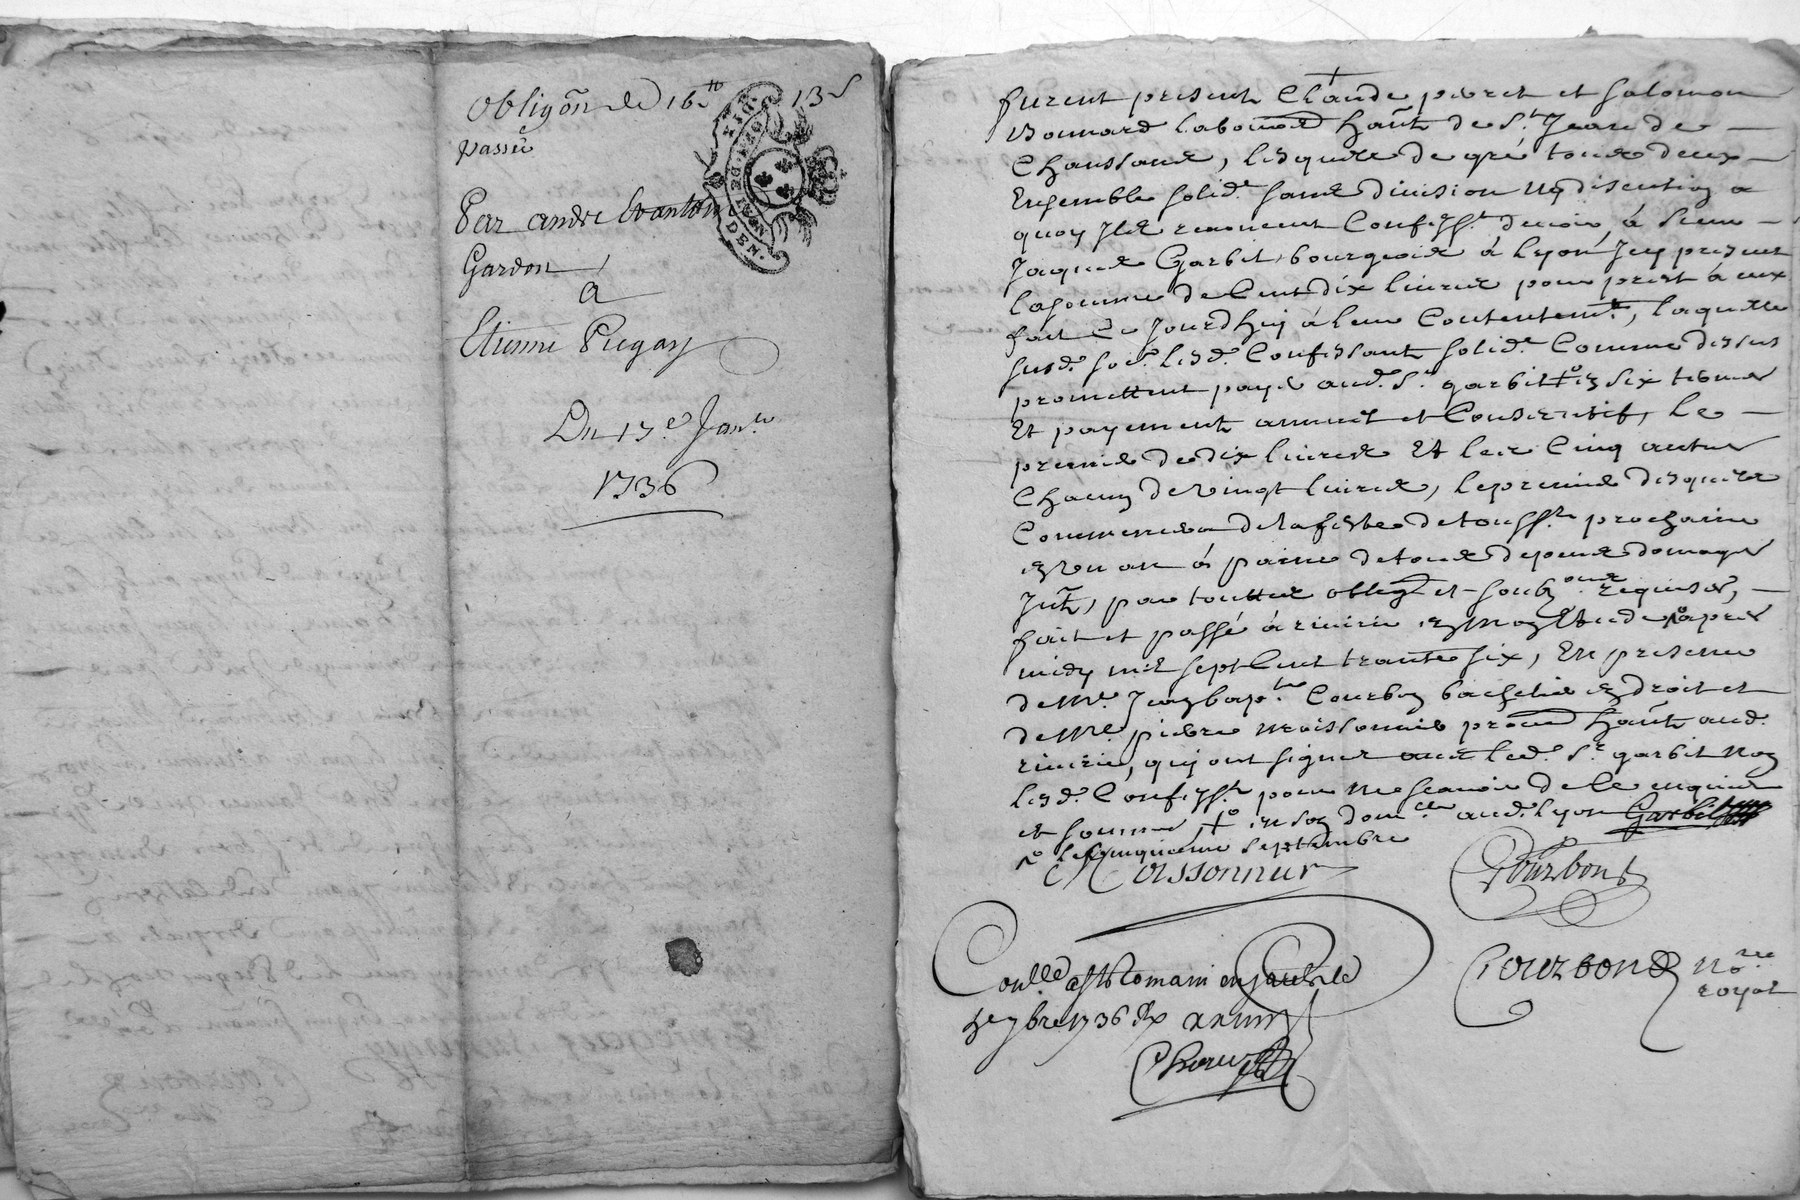 Obligõn de 16ᵗᵗ 13ˢ
passée
Par andré
Gardon
a
Etienne Piegay
Du 17ᵉ Janᵉʳ
1736
furent present Claude pierret et salomon
Bonnard laboureurs hañt de sᵗ Jean de
Chaussant, lesquels de gré tous deux
Ensemble solidᵗ sans division ny discution a
quoy Ils renoncent Confessᵗ devoir à sieur
Jaques Garbit bourgeois à Lyon Icy present
la somme de Cent dix livres pour prest à eux
fait Ce Jourdhuy à leur Contentemᵗ, laquelle
susdᵉ soᵉ lesdᵗ Confessants solidᵗ Comme dessus
promettent payer audᵗ sʳ garbit en six termes
Et payements annuels et Consecutifs, le
premier de dix livres Et les Cinq autres
Chacun de vingt livres, le premier desquels
Commencera de la feste de toussᵗˢ prochaine
en un an à paine de tous depens domages
Intʰ, par touttes obligõns et soubmons requises,
fait et passé à riverie en mon Etude apres
midy mil sept Cent trante six, En presence
de mʳᵉ Jean bapᵗᵉ Courbon bachelier en droit et
de mʳᵉ pierre moissonnier hañt audᵗ
riverie, quy ont signer avec ledᵗ sʳ garbit non
lesdᵗ Confessᵗˢ pour ne scavoir de ce enquis
et sommes, en son domᶜˡᵉ audᵗ Lyon Garbit
le Cinquieme septembre
Moissonnier
Courbon
Conllé a St Romain en Jarest le
7bre 1736
Courbon Noʳᵉ
royal